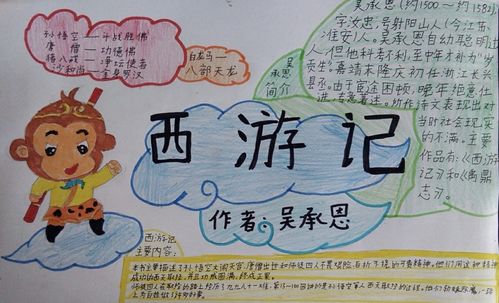 孙悟空—斗战胜佛
唐僧—功德佛
猪八戒—净坛使者
沙和尚—金身罗汉
白龙马—
八部天龙
吴承恩
简介
吴承恩(约1500～约1582)
字汝忠,号射阳山人(今江苏
淮安)人。吴承恩自幼聪明过
人,但他科考不利,至中年才补为“岁
贡生”。嘉靖末隆庆初任浙江长兴
县丞。由于宦途困顿,晚年绝意仕
进,专意著述。所作诗文表现出对
当时社会现实
的不满。主要
作品有:《西游
记》和《禹鼎
志》。
西游记
作者:吴承恩
西游记
主要内容:
本书主要描述了孙悟空大闹天宫,唐僧出世和师徒四人不畏艰险,百折不挠的可贵精神。他们用这种精神
成功的去西天取经,并且功成圆满,终成正果。
师徒四人在取经的路上经历了九九八十一难,